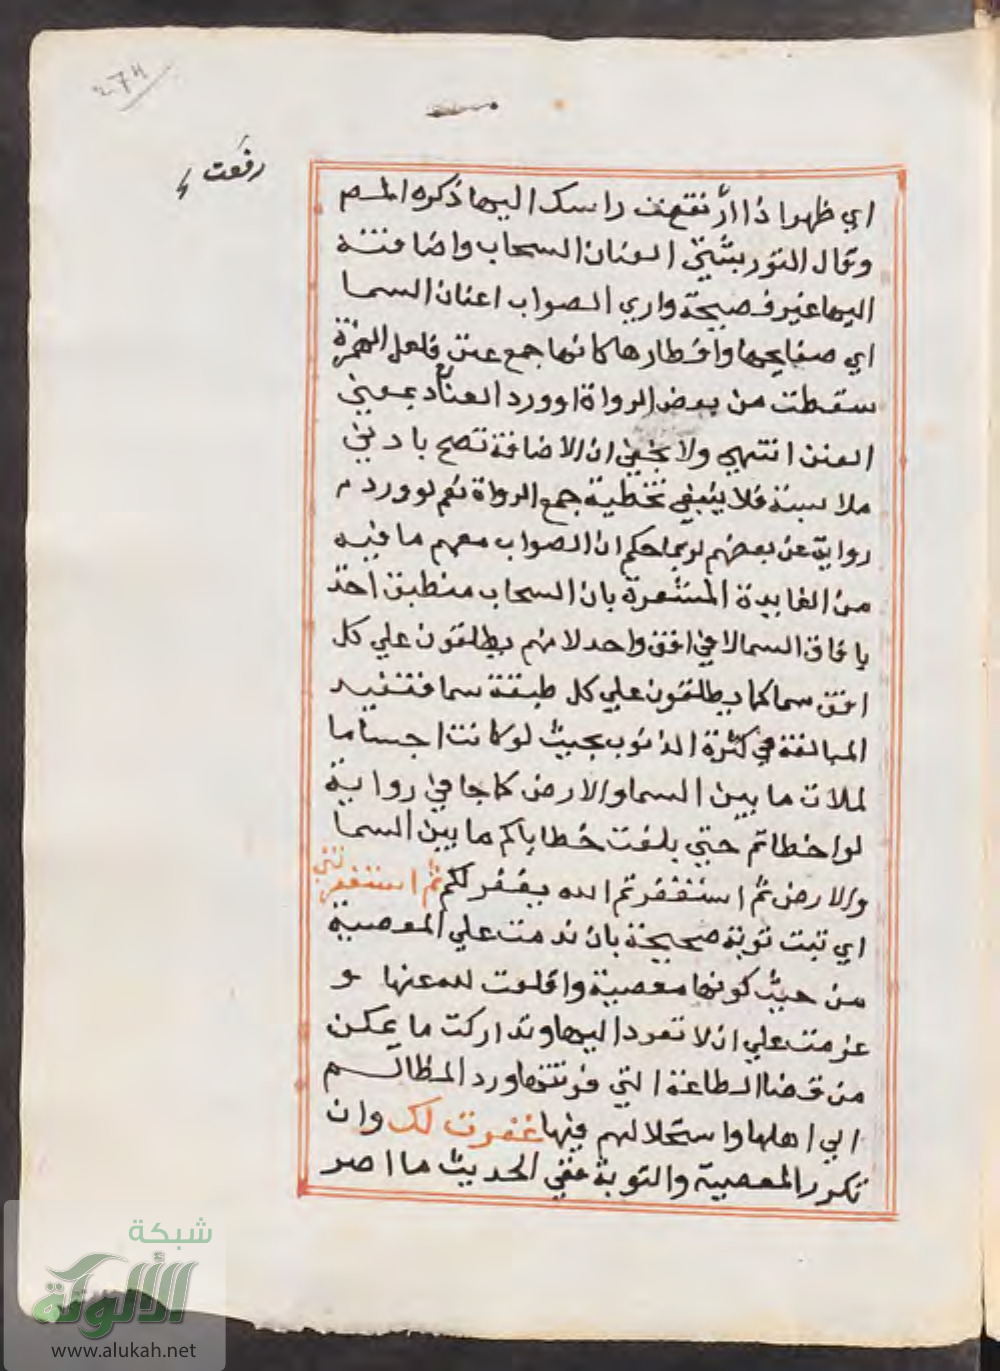 274
رفعت
اي ظهر اذا ارتفعت راسك اليها ذكره المصم
وقال التوربشتي العنان السحاب واضافته
اليها غير فصيحة واري الصواب اعنان السما
اي صفايحها واقطارها كانها جمع عنن فلعل الهمزة
سقطت من بعض الرواة او ورد العنان بمعني
العنن انتهي ولا يخفي ان الاضافة تصح بادني
ملابسة فلا ينبغي تخطية جمع الرواة نعم لو ورد
رواية عن بعضهم لربما حكم ان الصواب معهم ما فيه
من الفايدة المشعرة بان السحاب منطبق اخذ
بافاق السما لا في افق واحد لانهم يطلقون علي كل
افق سما كما يطلقون علي كل طبقة سما فتفيد
المبالغة في كثرة الذنوب بحيث لو كانت اجساما
لملات ما بين السما والارض كما جا في رواية
لو اخطاتم حتي بلغت خطاياكم ما بين السما
والارض ثم استغفرتم الله يغفر لكم ثم استغفرتني
اي تبت توبة صحيحة بان ندمت علي المعصية
من حيث كونها معصية واقلعت لله عنها و
عزمت علي ان لا تعود اليها وتداركت ما يمكن
من قضا الطاعة التي فوتتها ورد المظالم
الي اهلها واستحلالهم فيها غفرت لك وان
تكرر المعصية والتوبة ففي الحديث ما اصر
شبكة
الألوكة
www.alukah.net